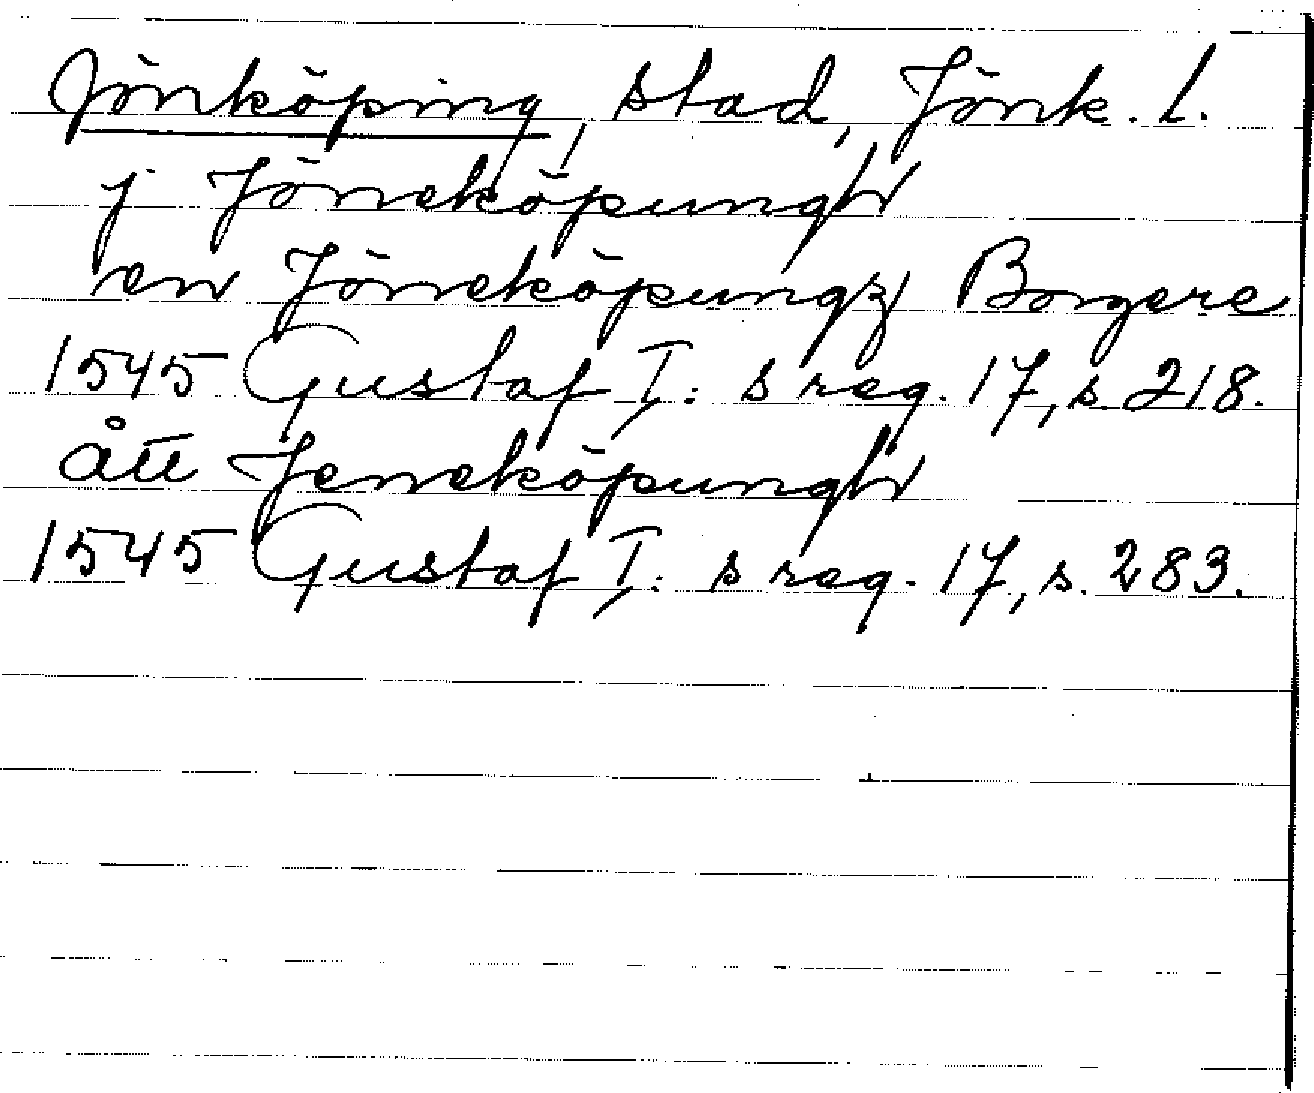 Jönköping, stad, Jönk. l.
j Jöneköpungh
en Jöneköpungz Borgere
1545 Gustaf I:s reg. 17, s. 218.
ått Jeneköpungh
1545 Gustaf I:s reg. 17, s. 283.